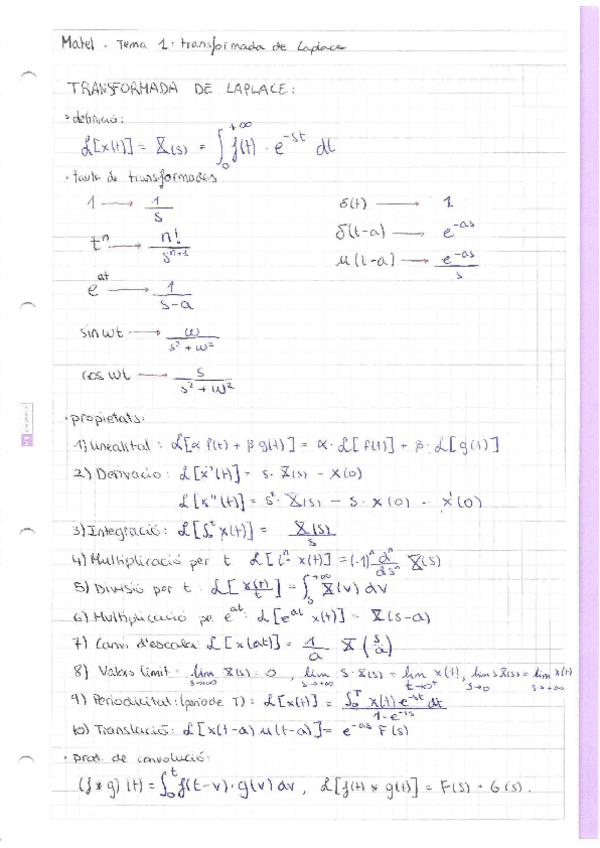 Matel - Tema 1: transformada de Laplace
TRANSFORMADA DE LAPLACE:
• definició:
L[x(t)] = X(s) = ∫₀^{+∞} f(t) · e^{-st} dt
• taula de transformades
1 → 1/s
δ(t) → 1
tⁿ → n!/s^{n+1}
δ(t-a) → e^{-as}
μ(t-a) → e^{-as}/s
e^{at} → 1/(s-a)
sin wt → w/(s² + w²)
cos wt → s/(s² + w²)
• propietats:
1) Linealitat: L[α f(t) + β g(t)] = α · L[f(t)] + β · L[g(t)]
2) Derivació: L[x'(t)] = s · X(s) - x(0)
L[x''(t)] = s² · X(s) - s · x(0) - x'(0)
3) Integració: L[∫₀ᵗ x(t)] = X(s)/s
4) Multiplicació per t L[tⁿ · x(t)] = (-1)ⁿ dⁿ/dsⁿ X(s)
5) Divisió per t: L[x(t)/t] = ∫ₛ^{+∞} X(v) dv
6) Multiplicació per e^{at}: L[e^{at} x(t)] = X(s-a)
7) Canvi d'escala: L[x(at)] = 1/a X(s/a)
8) Valors límit: lim_{s→∞} X(s) = 0, lim_{s→+∞} s · X(s) = lim_{t→0⁺} x(t), lim_{s→0} s X(s) = lim_{t→+∞} x(t)
9) Periodicitat: (període T): L[x(t)] = ∫₀ᵀ x(t) e^{-st} dt / (1-e^{-Ts})
10) Translació: L[x(t-a) μ(t-a)] = e^{-as} F(s)
• prod. de convolució:
(f * g)(t) = ∫₀ᵗ f(t-v) · g(v) dv, L[f(t) * g(t)] = F(s) · G(s).